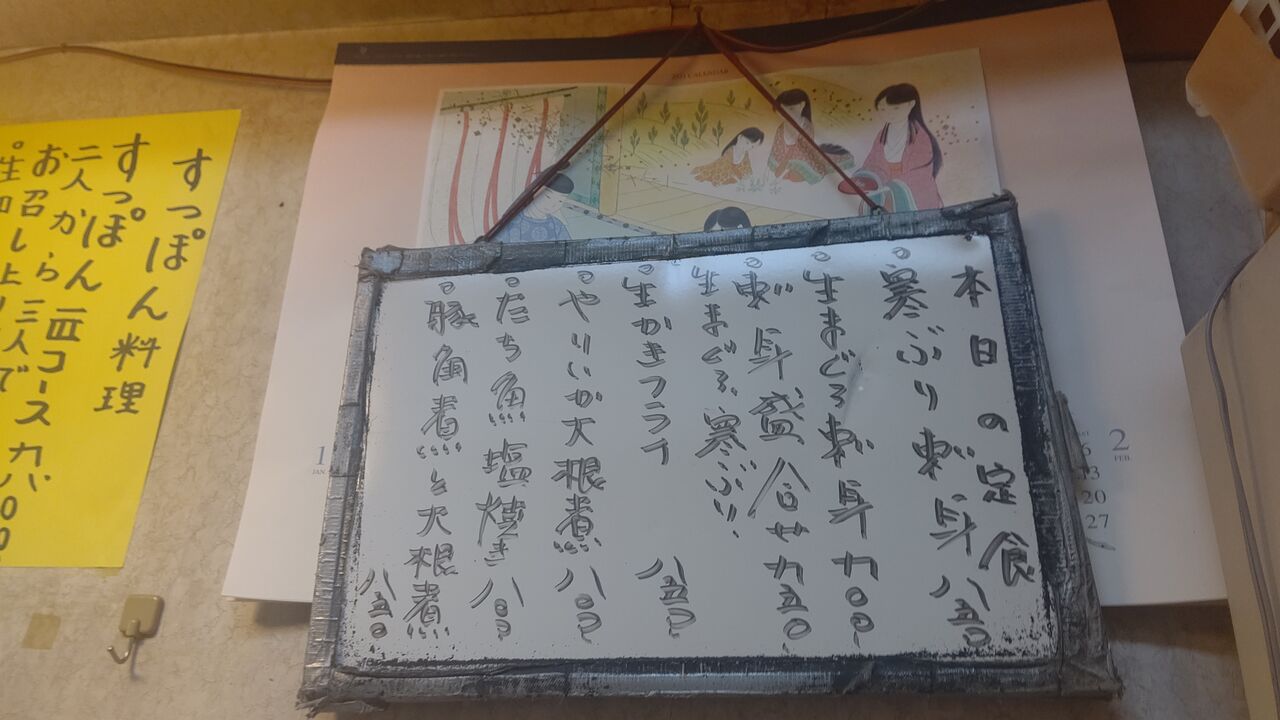 本日の定食
。寒ぶり刺身 八五〇
。生まぐろ刺身 九〇〇
。刺身盛合せ 九五〇
生まぐろ、寒ぶり
。生かきフライ 八五〇
。やりいか大根煮 八〇〇
。たち魚塩焼き 八〇〇
。豚角煮と大根煮 八五〇
すっぽん料理
すっぽん皿コース
二人から三人で
お召し上り
CALENDAR
1
JAN.
2
FEB.
6
13
20
27